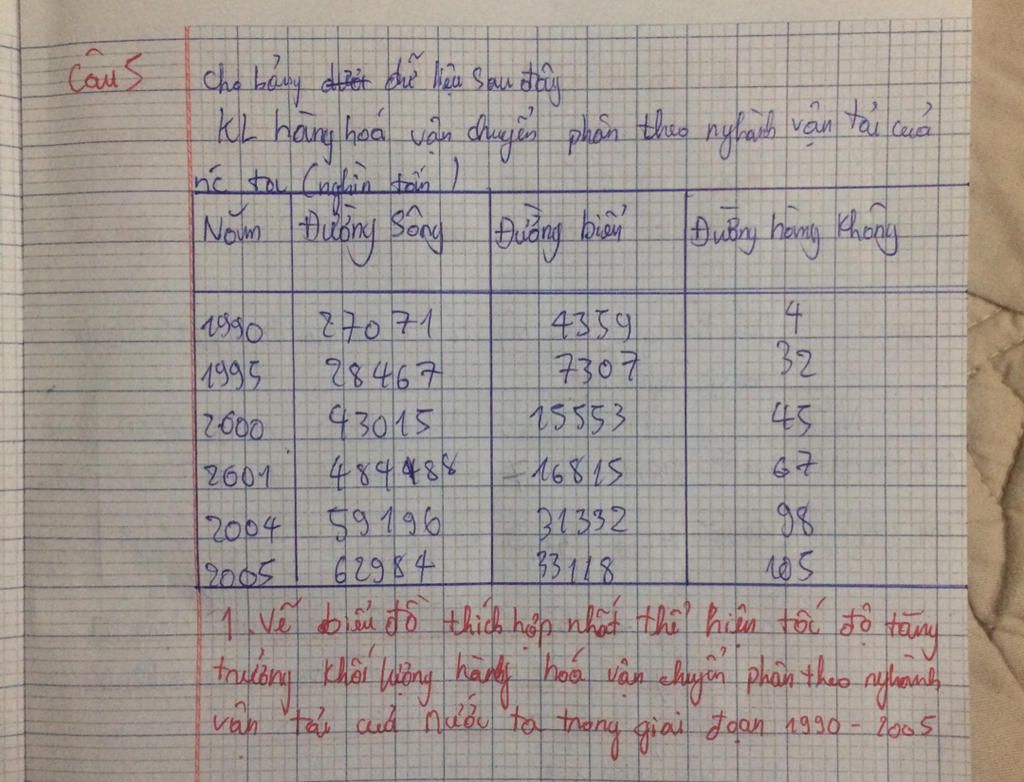 Câu 5
Cho bảng dữ liệu sau đây
KL hàng hoá vận chuyển phân theo nghành vận tải của
nc ta (nghìn tấn)
Năm Đường Sông Đường biển Đường hàng Không
1990 27071 4359 4
1995 28467 7307 32
2000 43015 15553 45
2001 484488 16815 67
2004 59196 31332 98
2005 62984 33118 105
1. Vẽ biểu đồ thích hợp nhất thể hiện tốc độ tăng
trưởng khối lượng hàng hoá vận chuyển phân theo nghành
vận tải cuả nước ta trong giai đoạn 1990 - 2005